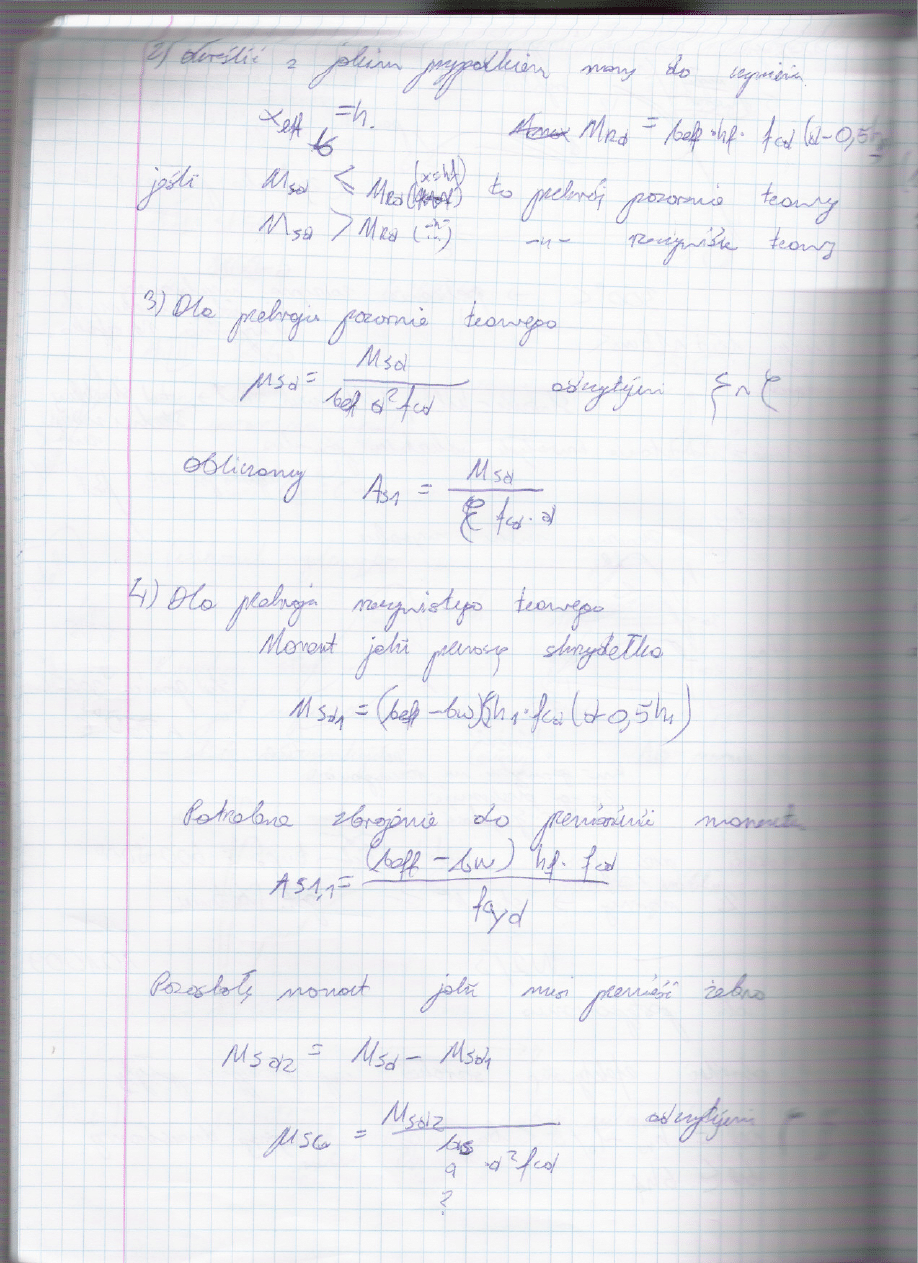 2) Określić z jakim przypadkiem mamy do czynienia
x eff = h.     M Rd = beff · hf · fcd (d - 0,5h
jeśli M sd ≤ M Rd (x=hf) to przekrój pozornie teowy
M sd > M Rd (-"-) -"- rzeczywiście teowy
3) Dla przekroju pozornie teowego
μsd = Msd / beff d² fcd     odczytujemy ξ n ζ
Obliczamy As1 = Msd / ζ fcd · d
4) Dla przekroju rzeczywistego teowego
Moment jaki przenoszą skrzydełka
M sd1 = (beff - bw) h1 · fcd (d - 0,5 h1)
Potrzebne zbrojenie do przeniesienia momentu
As1,1 = (beff - bw) hf · fcd / fyd
Pozostały moment jaki musi przenieść żebro
M sd2 = M sd - M sd1
μsc = Msd2 / · d² fcd     odczytujemy
?